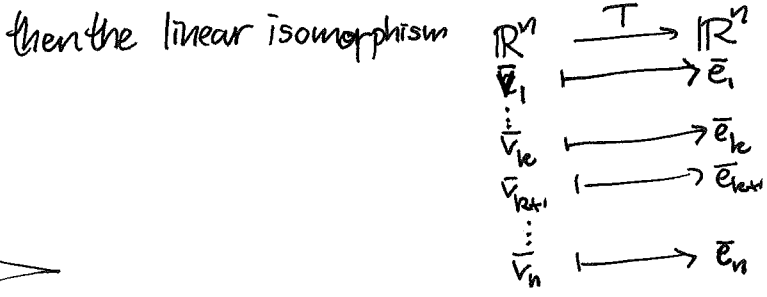 then the linear isomorphism ℝⁿ —T→ ℝⁿ
v̄₁ ⟼ ē₁
⋮
v̄ₖ ⟼ ēₖ
v̄ₖ₊₁ ⟼ ēₖ₊₁
⋮
v̄ₙ ⟼ ēₙ